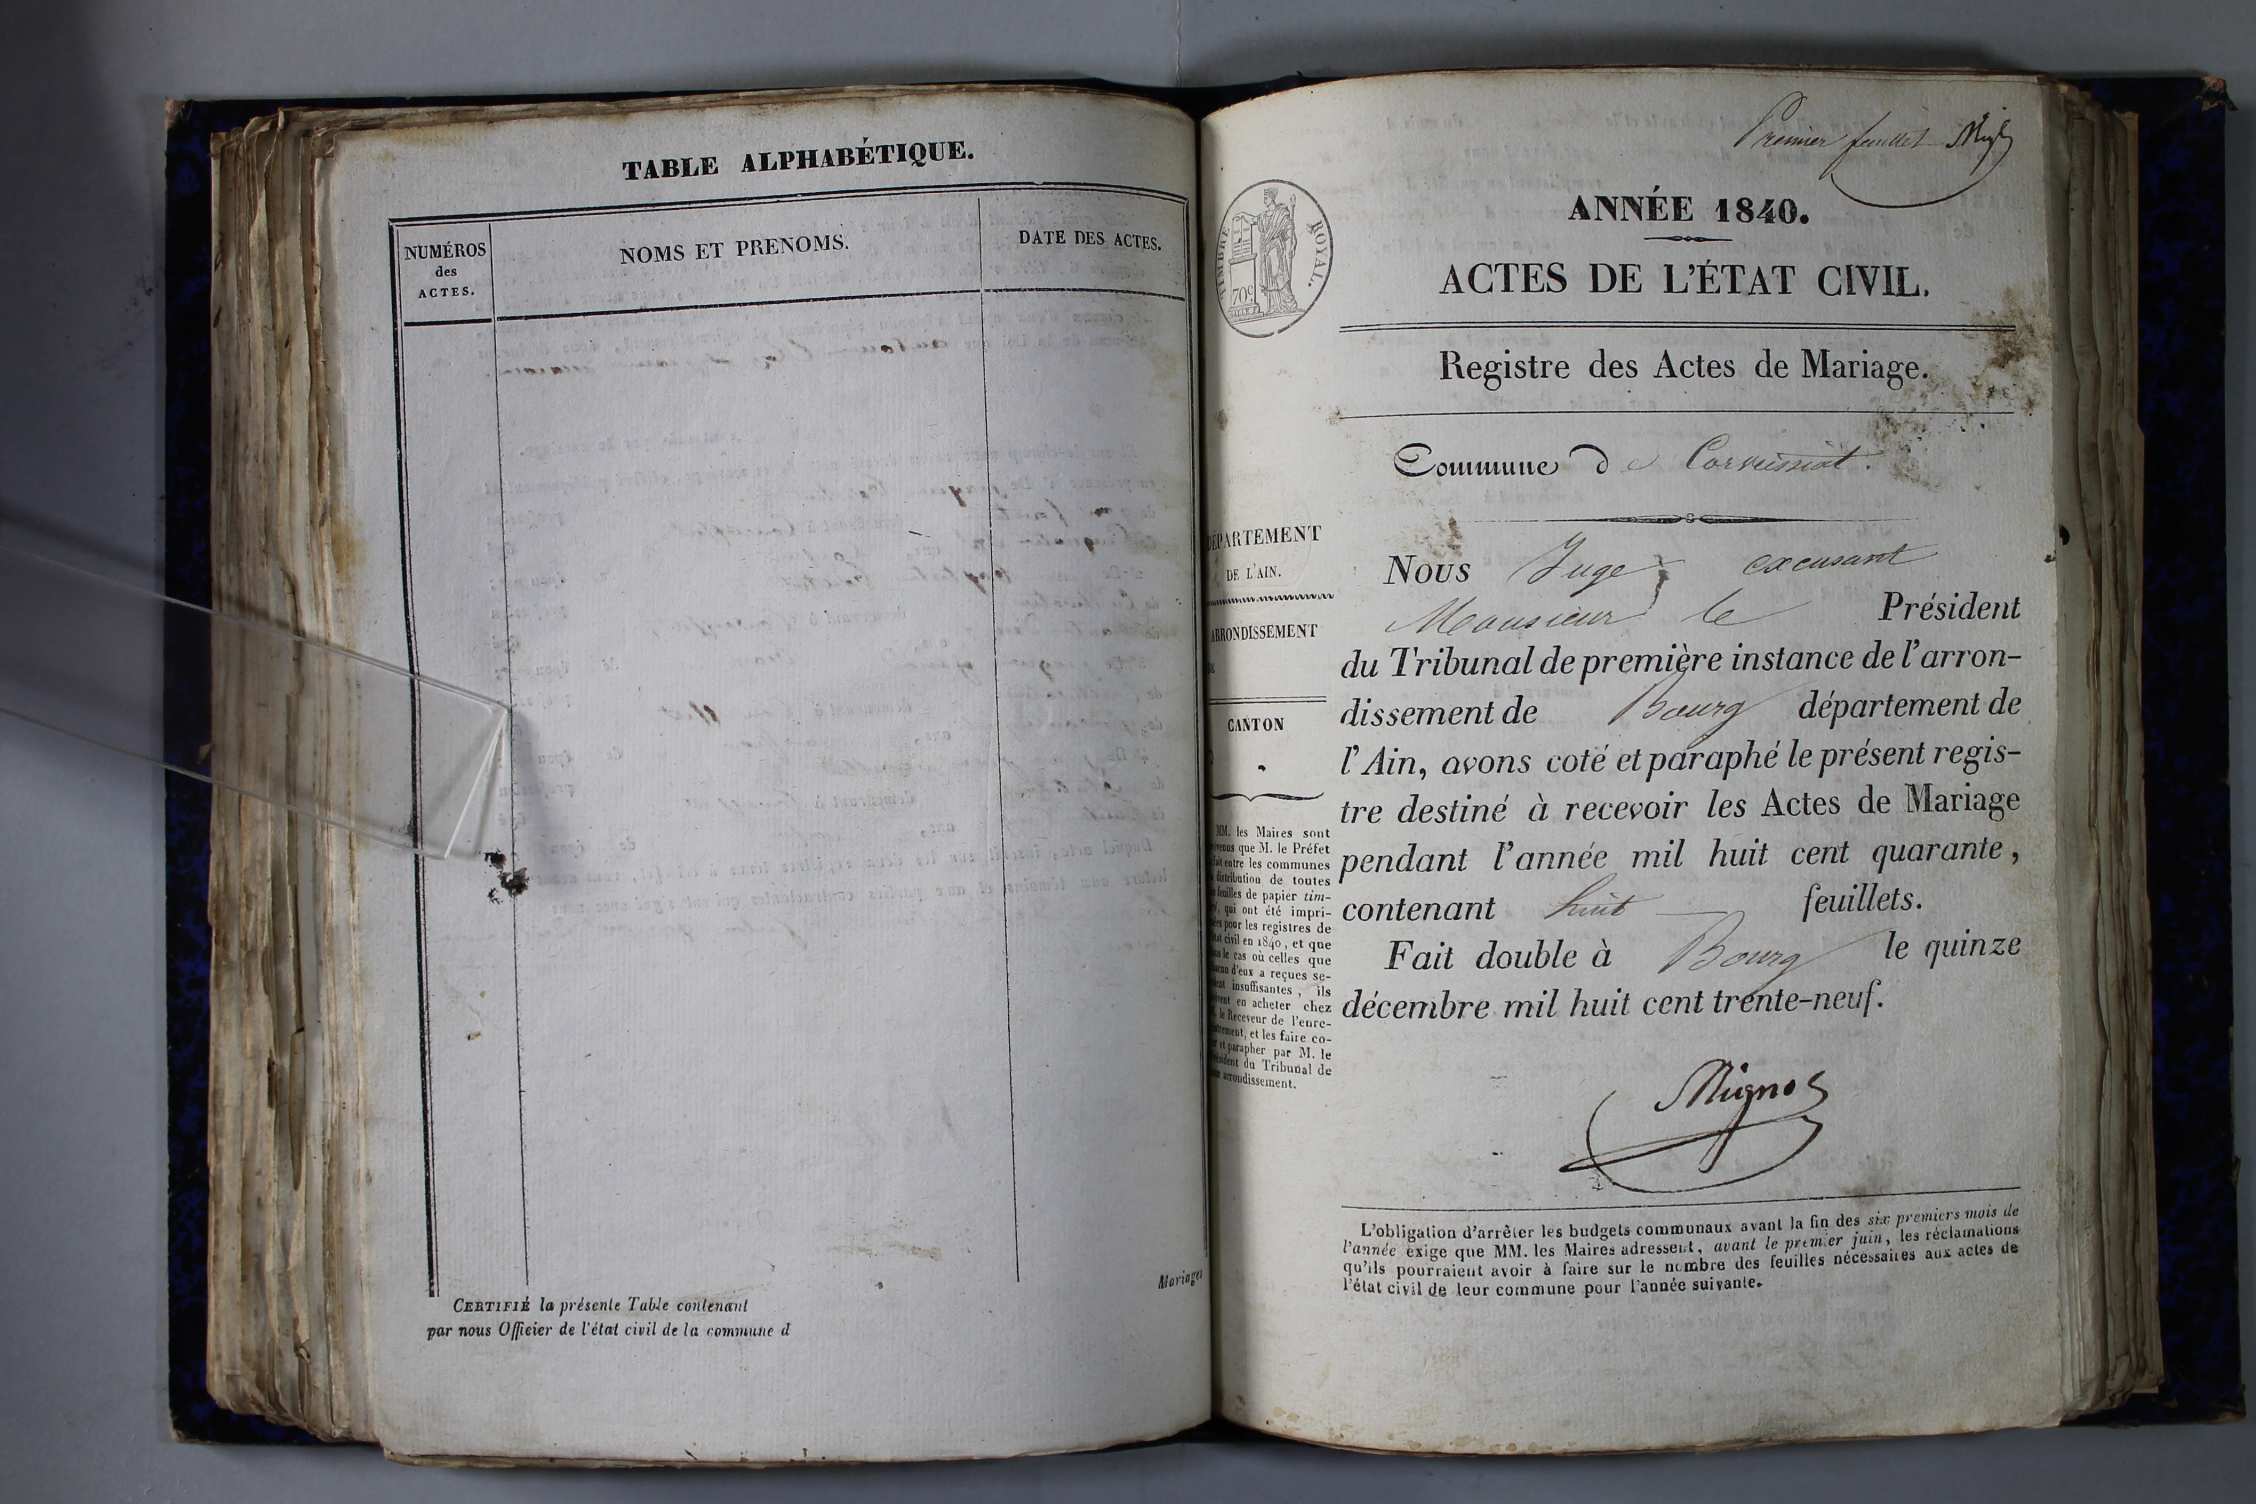 TABLE ALPHABÉTIQUE.
NUMÉROS
des
ACTES.
NOMS ET PRENOMS.
DATE DES ACTES.
CERTIFIÉ la présente Table contenant
par nous Officier de l'état civil de la commune d
Mariages
Premier feuillet
TIMBRE ROYAL.
70c
ANNÉE 1840.
ACTES DE L'ÉTAT CIVIL.
Registre des Actes de Mariage.
Commune de Corveissiat.
DÉPARTEMENT
DE L'AIN.
ARRONDISSEMENT
CANTON
MM. les Maires sont
que M. le Préfet
fait entre les communes
distribution de toutes
feuilles de papier tim-
qui ont été impri-
pour les registres de
civil en 1840, et que
le cas où celles que
d'eux a reçues se-
insuffisantes, ils
en acheter chez
le Receveur de l'enre-
et les faire co-
et parapher par M. le
du Tribunal de
arrondissement.
Nous Juge excusant
Monsieur le Président
du Tribunal de première instance de l'arron-
dissement de Bourg département de
l'Ain, avons coté et paraphé le présent regis-
tre destiné à recevoir les Actes de Mariage
pendant l'année mil huit cent quarante,
contenant huit feuillets.
Fait double à Bourg le quinze
décembre mil huit cent trente-neuf.
L'obligation d'arrêter les budgets communaux avant la fin des six premiers mois de
l'année exige que MM. les Maires adressent, avant le premier juin, les réclamations
qu'ils pourraient avoir à faire sur le nombre des feuilles nécessaires aux actes de
l'état civil de leur commune pour l'année suivante.